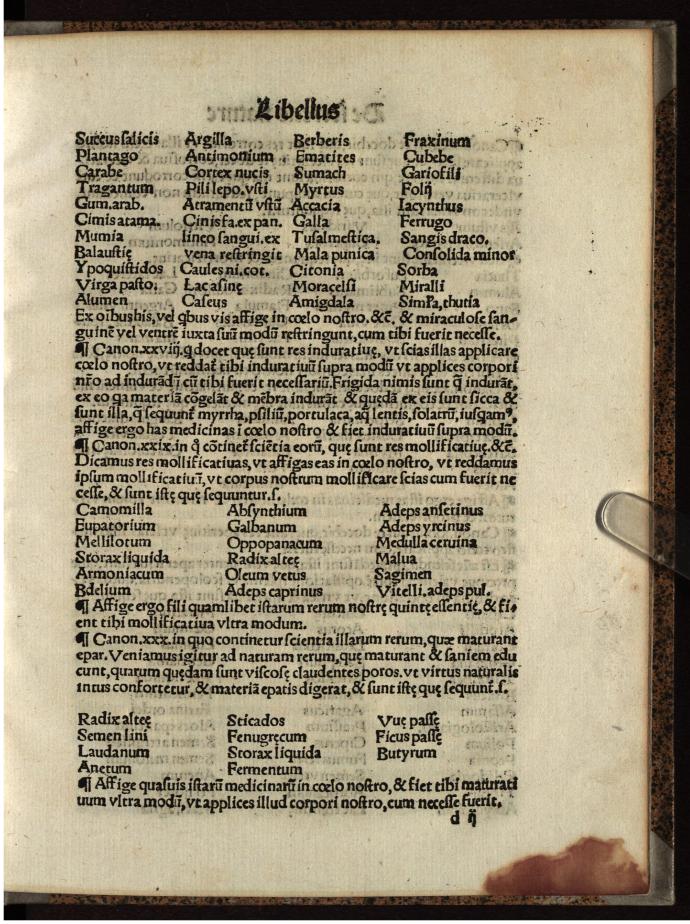 Libellus
Succus salicis Argilla Berberis Fraxinum
Plantago Antimonium Ematites Cubebe
Carabe Cortex nucis Sumach Gariofili
Tragantum Pili lepo. vsti Myrtus Folij
Gum. arab. Atramentū vstū Accacia Iacynthus
Cimis atama. Cinis fa. ex pan. Galla Ferrugo
Mumia lineo sangui. ex Tusalmestica. Sangis draco.
Balaustię vena restringit Mala punica Consolida minor
Ypoquistidos Caules ni. cot. Citonia Sorba
Virga pasto. Lac asinę Moracelsi Miralli
Alumen Caseus Amigdala thutia
Ex oībus his, vel qbus vis affige in cœlo nostro. &c̄. & miraculose san-
guinē vel ventrē iuxta suū modū restringunt, cum tibi fuerit necesse.
¶ Canon. xxviij. q docet quę sunt res induratiuę, vt scias illas applicare
cœlo nostro, vt reddat̄ tibi induratiuū supra modū vt applices corpori
nr̄o ad indurādū cū tibi fuerit necessariū. Frigida nimis sunt q̄ indurāt,
ex eo qa materiā cōgelāt & mēbra indurāt & quędā ex eis sunt sicca &
sunt illa, q̄ sequunt̄ myrrha, psiliū, portulaca, aq̄ lentis, solatrū, iusqamꝰ,
affige ergo has medicinas i cœlo nostro & fiet induratiuū supra modū.
¶ Canon. xxix. in q̄ cōtinet̄ sciētia eorū, quę sunt res mollificatiuę. &c̄.
Dicamus res mollificatiuas, vt affigas eas in cœlo nostro, vt reddamus
ipsum mollificatiuū, vt corpus nostrum mollificare scias cum fuerit ne
cesse, & sunt istę quę sequuntur. s.
Camomilla Absynthium Adeps anserinus
Eupatorium Galbanum Adeps yrcinus
Mellilotum Oppopanacum Medulla ceruina
Storax liquida Radix alteę Malua
Armoniacum Oleum vetus Sagimen
Bdelium Adeps caprinus Vitelli. adeps pul.
¶ Affige ergo fili quamlibet istarum rerum nostrę quintę essentię, & fi-
ent tibi mollificatiua vltra modum.
¶ Canon. xxx. in quo continetur scientia illarum rerum, quæ maturant
epar. Veniamus igitur ad naturam rerum, quę maturant & saniem edu
cunt, quarum quędam sunt viscosę claudentes poros. vt virtus naturalis
intus confortetur, & materiā epatis digerat, & sunt istę quę sequunt̄. s.
Radix alteę Sticados Vuę passę
Semen lini Fenugręcum Ficus passę
Laudanum Storax liquida Butyrum
Anetum Fermentum
¶ Affige quasuis istarū medicinarū in cœlo nostro, & fiet tibi maturati
uum vltra modū, vt applices illud corpori nostro, cum necesse fuerit.
d ij